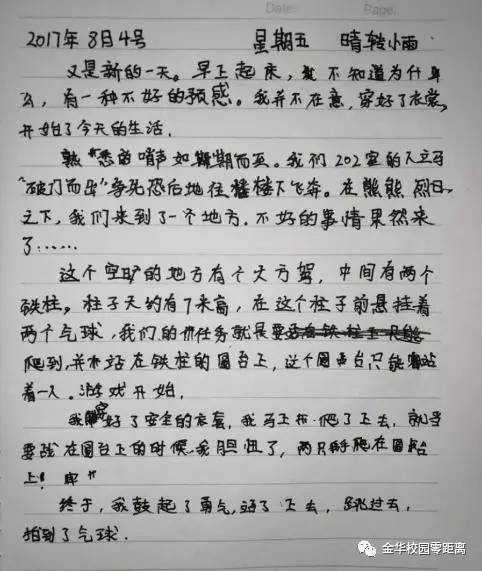 Date: Page:
2017年8月4号 星期五 晴转小雨
又是新的一天。早上起床,就不知道为什
么,有一种不好的预感。我并不在意,穿好了衣裳,
开始了今天的生活.
熟悉的哨声如期而至。我们202室的人立马
"破门而出"争先恐后地往楼下飞奔。在熊熊烈日
之下,我们来到了一个地方.不好的事情果然来
了……
这个空旷的地方有个大方架,中间有两个
铁柱。柱子大约有7米高,在这个柱子前悬挂着
两个气球,我们的任务就是要
爬到,并站在铁柱的圆台上,这个圆台只能站
着一人.游戏开始.
我穿好了安全的衣套,我马上爬了上去,就当
要站在圆台上的时候,我胆怯了,两只手爬在圆台
上!
终于,我鼓起了勇气,站了上去,跳过去,
拍到了气球.
金华校园零距离